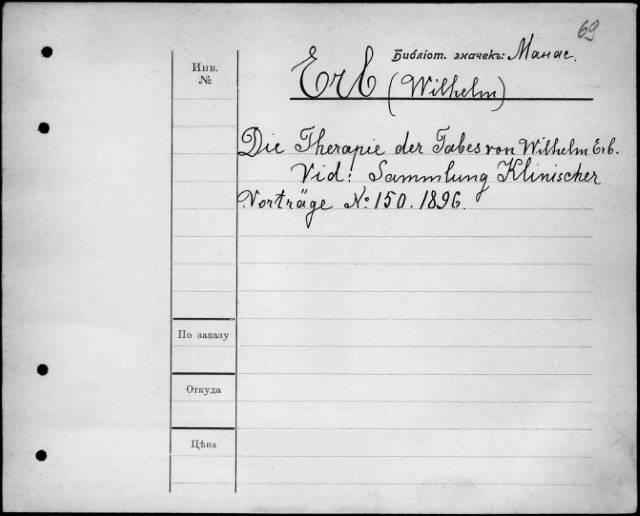 69
Библіот. значекъ: Манас.
Инв.
№
Erb
(Wilhelm)
Die Therapie der Tabes von Wilhelm Erb.
Vid: Sammlung Klinischer
Vorträge №: 150. 1896.
По заказу
Откуда
Цѣна